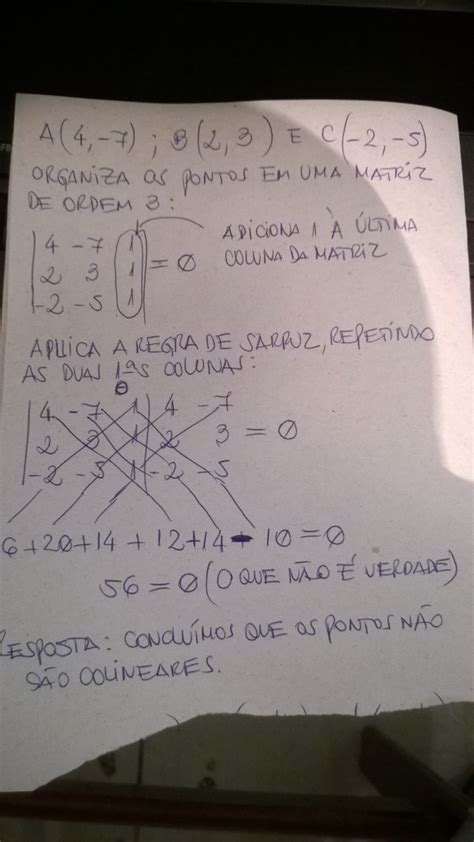 A(4,-7) ; B(2,3) E C(-2,-5)
ORGANIZA OS PONTOS EM UMA MATRIZ
DE ORDEM 3:
|4 -7 1|
|2 3 1| = 0
|-2 -5 1|
ADICIONA 1 À ÚLTIMA
COLUNA DA MATRIZ
APLICA A REGRA DE SARRUZ, REPETINDO
AS DUAS 1ªS COLUNAS:
|4 -7 1| 4 -7
|2 3 1| 2 3 = 0
|-2 -5 1| -2 -5
6+20+14+12+14-10=0
56=0 (O QUE NÃO É VERDADE)
RESPOSTA: CONCLUÍMOS QUE OS PONTOS NÃO
SÃO COLINEARES.